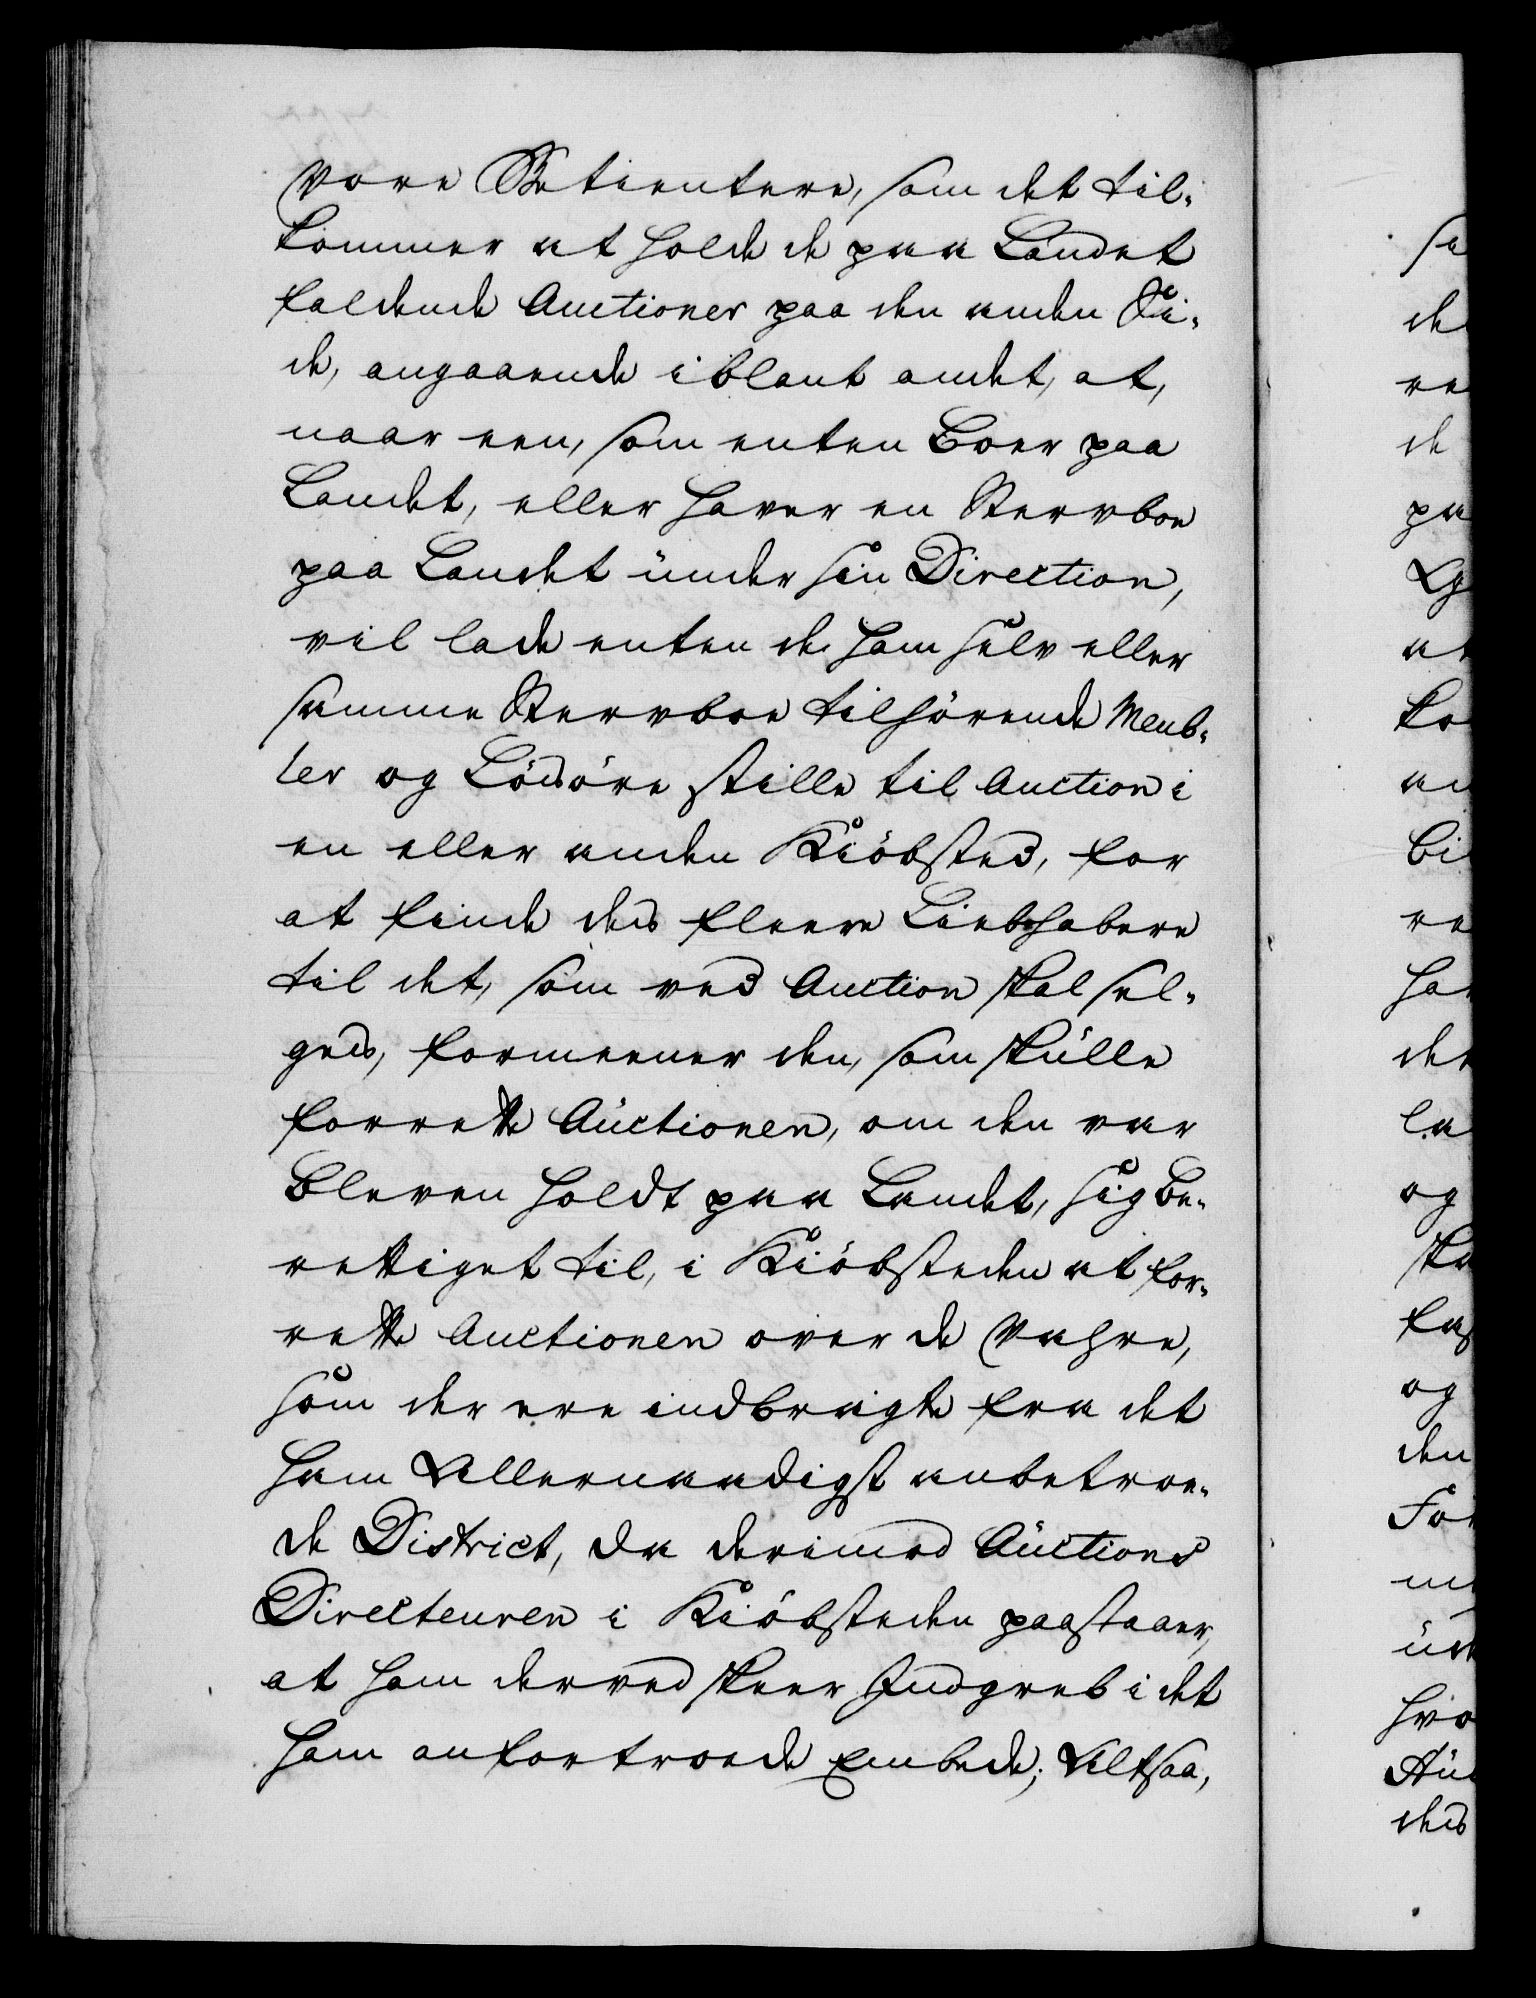 Vore Betientere, som det til-
kommer at holde de paa Landet
faldende Auctioner paa den anden Si-
de, angaaende iblant andet, at,
naar een, som enten Boer paa
Landet, eller haver en Stervboe
paa Landet under sin Direction,
vil lade enten de ham selv eller
samme Stervboe tilhörende Meub-
ler og Lösöre stille til Auction i
en eller anden Kiöbsted, for
at finde des fleere Liebhabere
til det, som ved Auction skal sel-
ges, formeener den, som skulle
forrette Auctionen, om den var
bleven holdt paa Landet, sig be-
rettiget til, i Kiöbsteden at for-
rette Auctionen over de Vahre,
som der ere indbragte fra det
ham Allernaadigst anbetroe-
de District, da derimod Auctions
Directeuren i Kiöbsteden paastaaer,
at ham derved skeer Indgreb i det
ham anfortroede Embede; Altsaa,